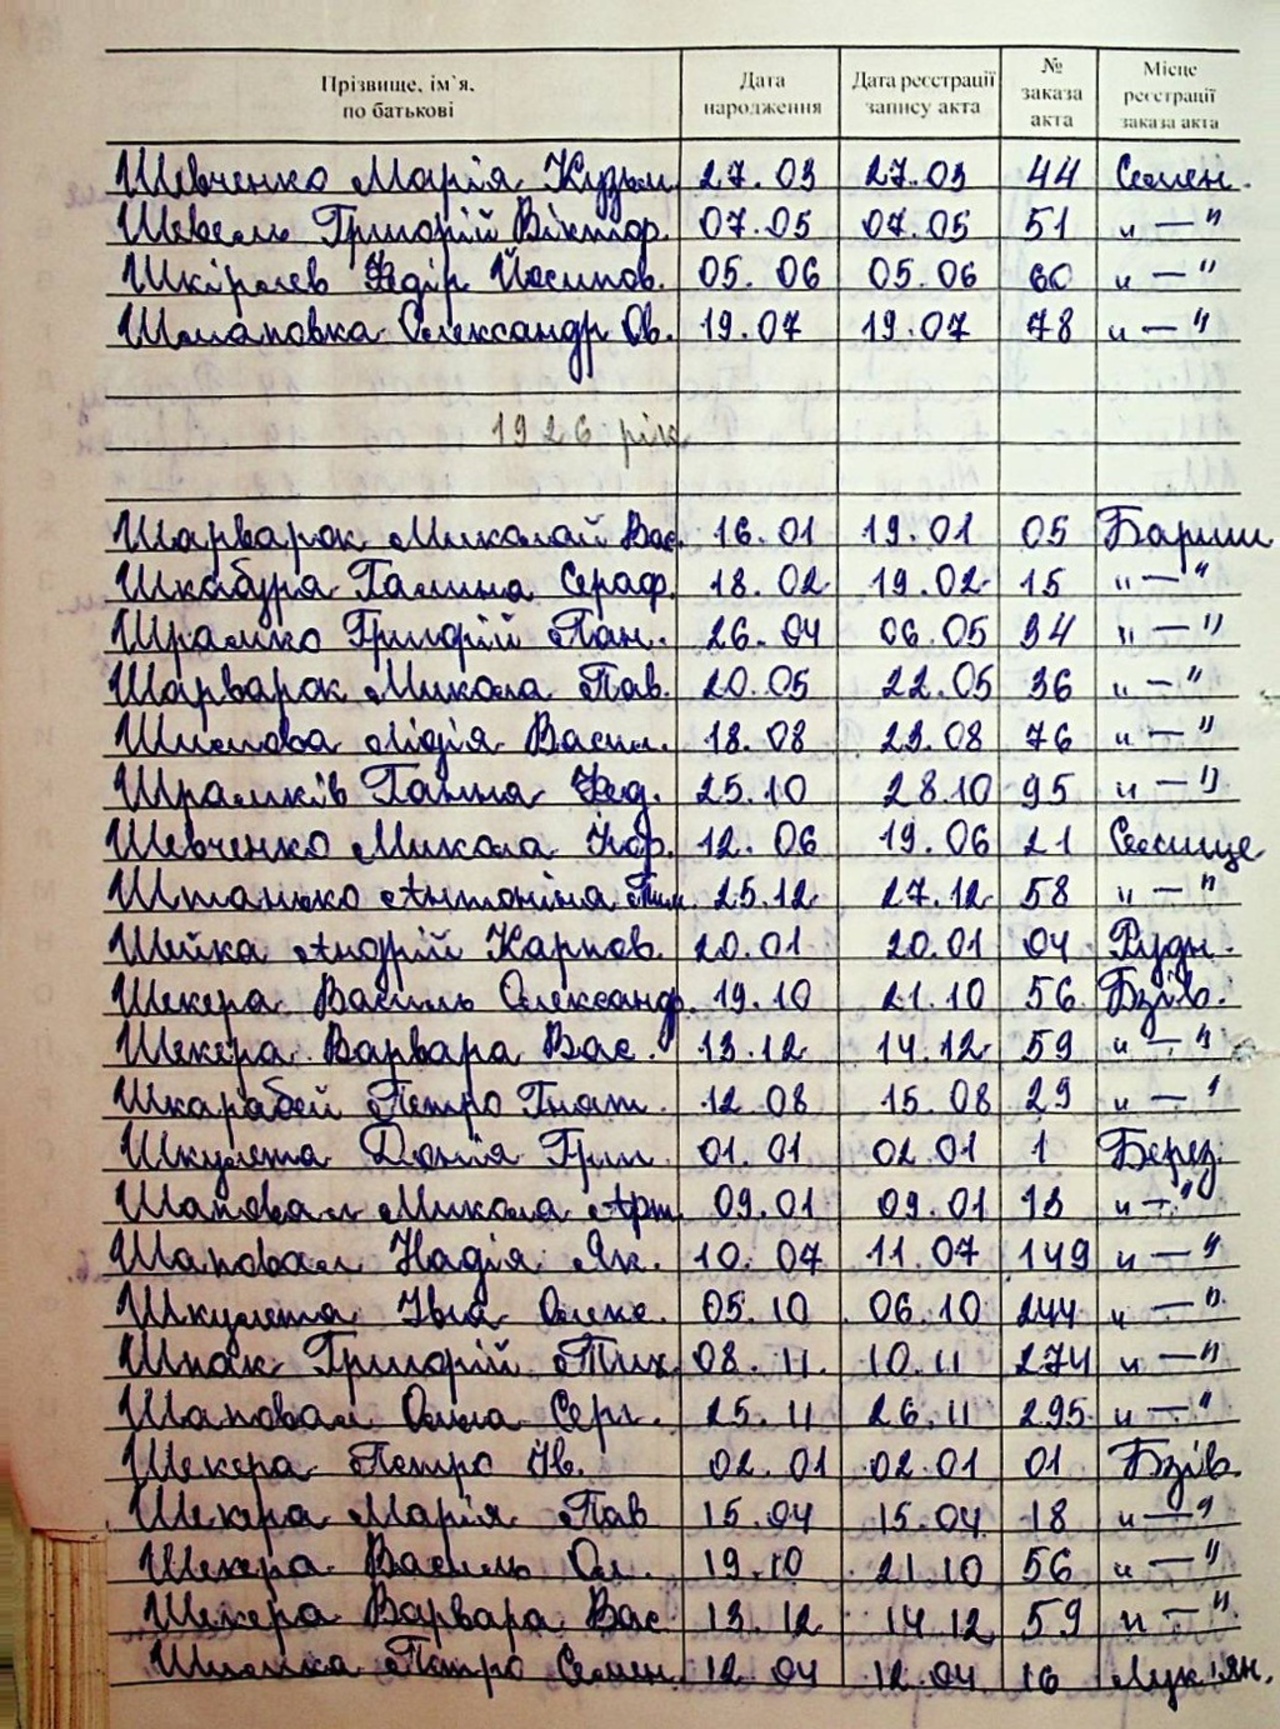 Прізвище, ім`я, по батькові Дата народження Дата реєстрації запису акта № заказа акта Місце реєстрації заказа акта
Шевченко Марія Кузьм. 27.03 27.03 44 Семен.
Шевель Григорій Віктор. 07.05 07.05 51 " — "
Федір Йосипов. 05.06 05.06 60 " — "
Шмаповка Олександр Ов. 19.07 19.07 78 " — "
1926 рік
Шарварок Миколай Вас. 16.01 19.01 05 Бариш
Шкабура Галина Сераф. 18.02 19.02 15 " — "
Шрамко Григорій Пан. 26.04 06.05 34 " — "
Шарварок Микола Пав. 20.05 22.05 36 " — "
Шилова Лідія Васил. 18.08 23.08 76 " — "
Шрамків Ганна Фед. 25.10 28.10 95 " — "
Шевченко Микола 12.06 19.06 21 Селище
Штанько Антоніна Тим. 25.12 27.12 58 " — "
Шийка Андрій Карпов. 20.01 20.01 04 Рудн.
Шекера Василь Олександр. 19.10 21.10 56 Бзів.
Шекера Варвара Вас. 13.12 14.12 59 " — "
Шкарабей Петро Гнат. 12.08 15.08 29 " — "
Шкулета Донія Григ. 01.01 02.01 1 Берез.
Шаповал Микола Арт. 09.01 09.01 13 " — "
Шаповал Надія Як. 10.07 11.07 149 " — "
Шкулета Іван Олекс. 05.10 06.10 244 " — "
Шпак Григорій Тих. 08.11. 10.11 274 " — "
Шаповал Ольга Серг. 25.11 26.11 295 " — "
Шекера Петро Ів. 02.01 02.01 01 Бзів.
Шекера Марія Пав 15.04 15.04 18 " — "
Шекера Василь Ол. 19.10 21.10 56 " — "
Шекера Варвара Вас. 13.12 14.12 59 " — "
Петро Семен. 12.04 12.04 16 Лук'ян.